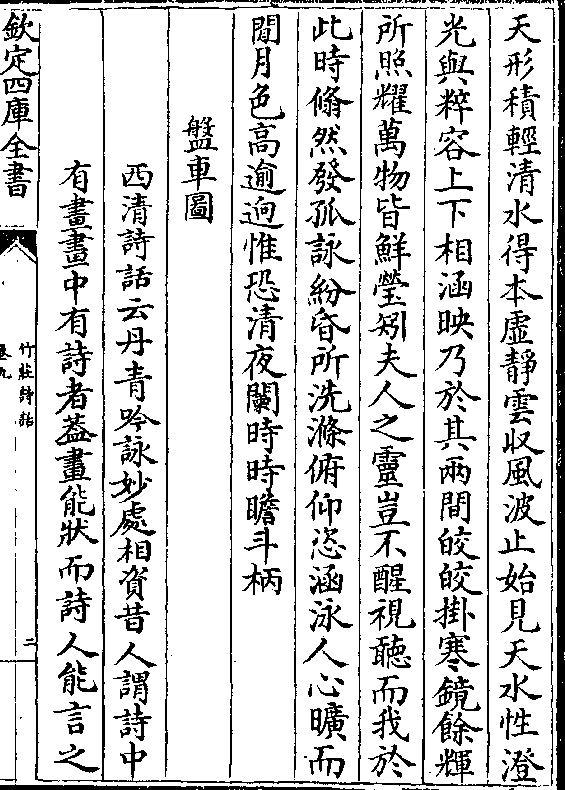 天形積輕清水得本虛靜雲収風波止始見天水性澄
光與粹容上下相涵映乃於其兩間皎皎掛寒鏡餘輝
所照耀萬物皆鮮瑩矧夫人之靈豈不醒視聽而我於
此時翛然發孤詠紛昏所洗滌俯仰恣涵泳人心曠而
閒月色高逾逈惟恐清夜闌時時瞻斗柄
盤車圖
西清詩話云丹青吟詠妙處相資昔人謂詩中
有畫畫中有詩者葢畫能狀而詩人能言之
欽定四庫全書
竹莊詩話
卷九
二